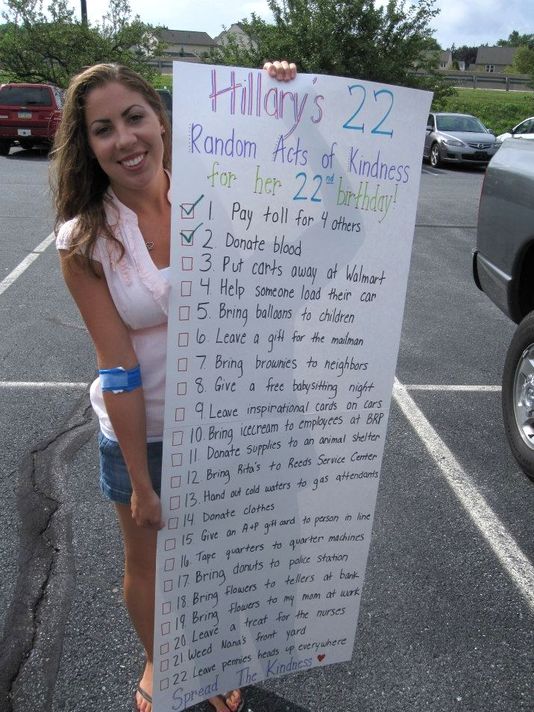 Hillary's 22
Random Acts of Kindness
for her 22nd birthday!
1. Pay toll for 4 others
2. Donate blood
3. Put carts away at Walmart
4. Help someone load their car
5. Bring balloons to children
6. Leave a gift for the mailman
7. Bring brownies to neighbors
8. Give a free babysitting night
9 Leave inspirational cards on cars
10. Bring icecream to employees at BRP
11. Donate supplies to an animal shelter
12 Bring Rita's to Reeds Service Center
13. Hand out cold waters to gas attendants
14 Donate clothes
15 Give an A+P giftcard to person in line
16. Tape quarters to quarter machines
17. Bring donuts to police station
18. Bring flowers to tellers at bank
19. Bring flowers to my mom at work
20. Leave a treat for the nurses
21 Weed Nana's front yard
22 Leave pennies heads up everywhere
Spread The Kindness ♥